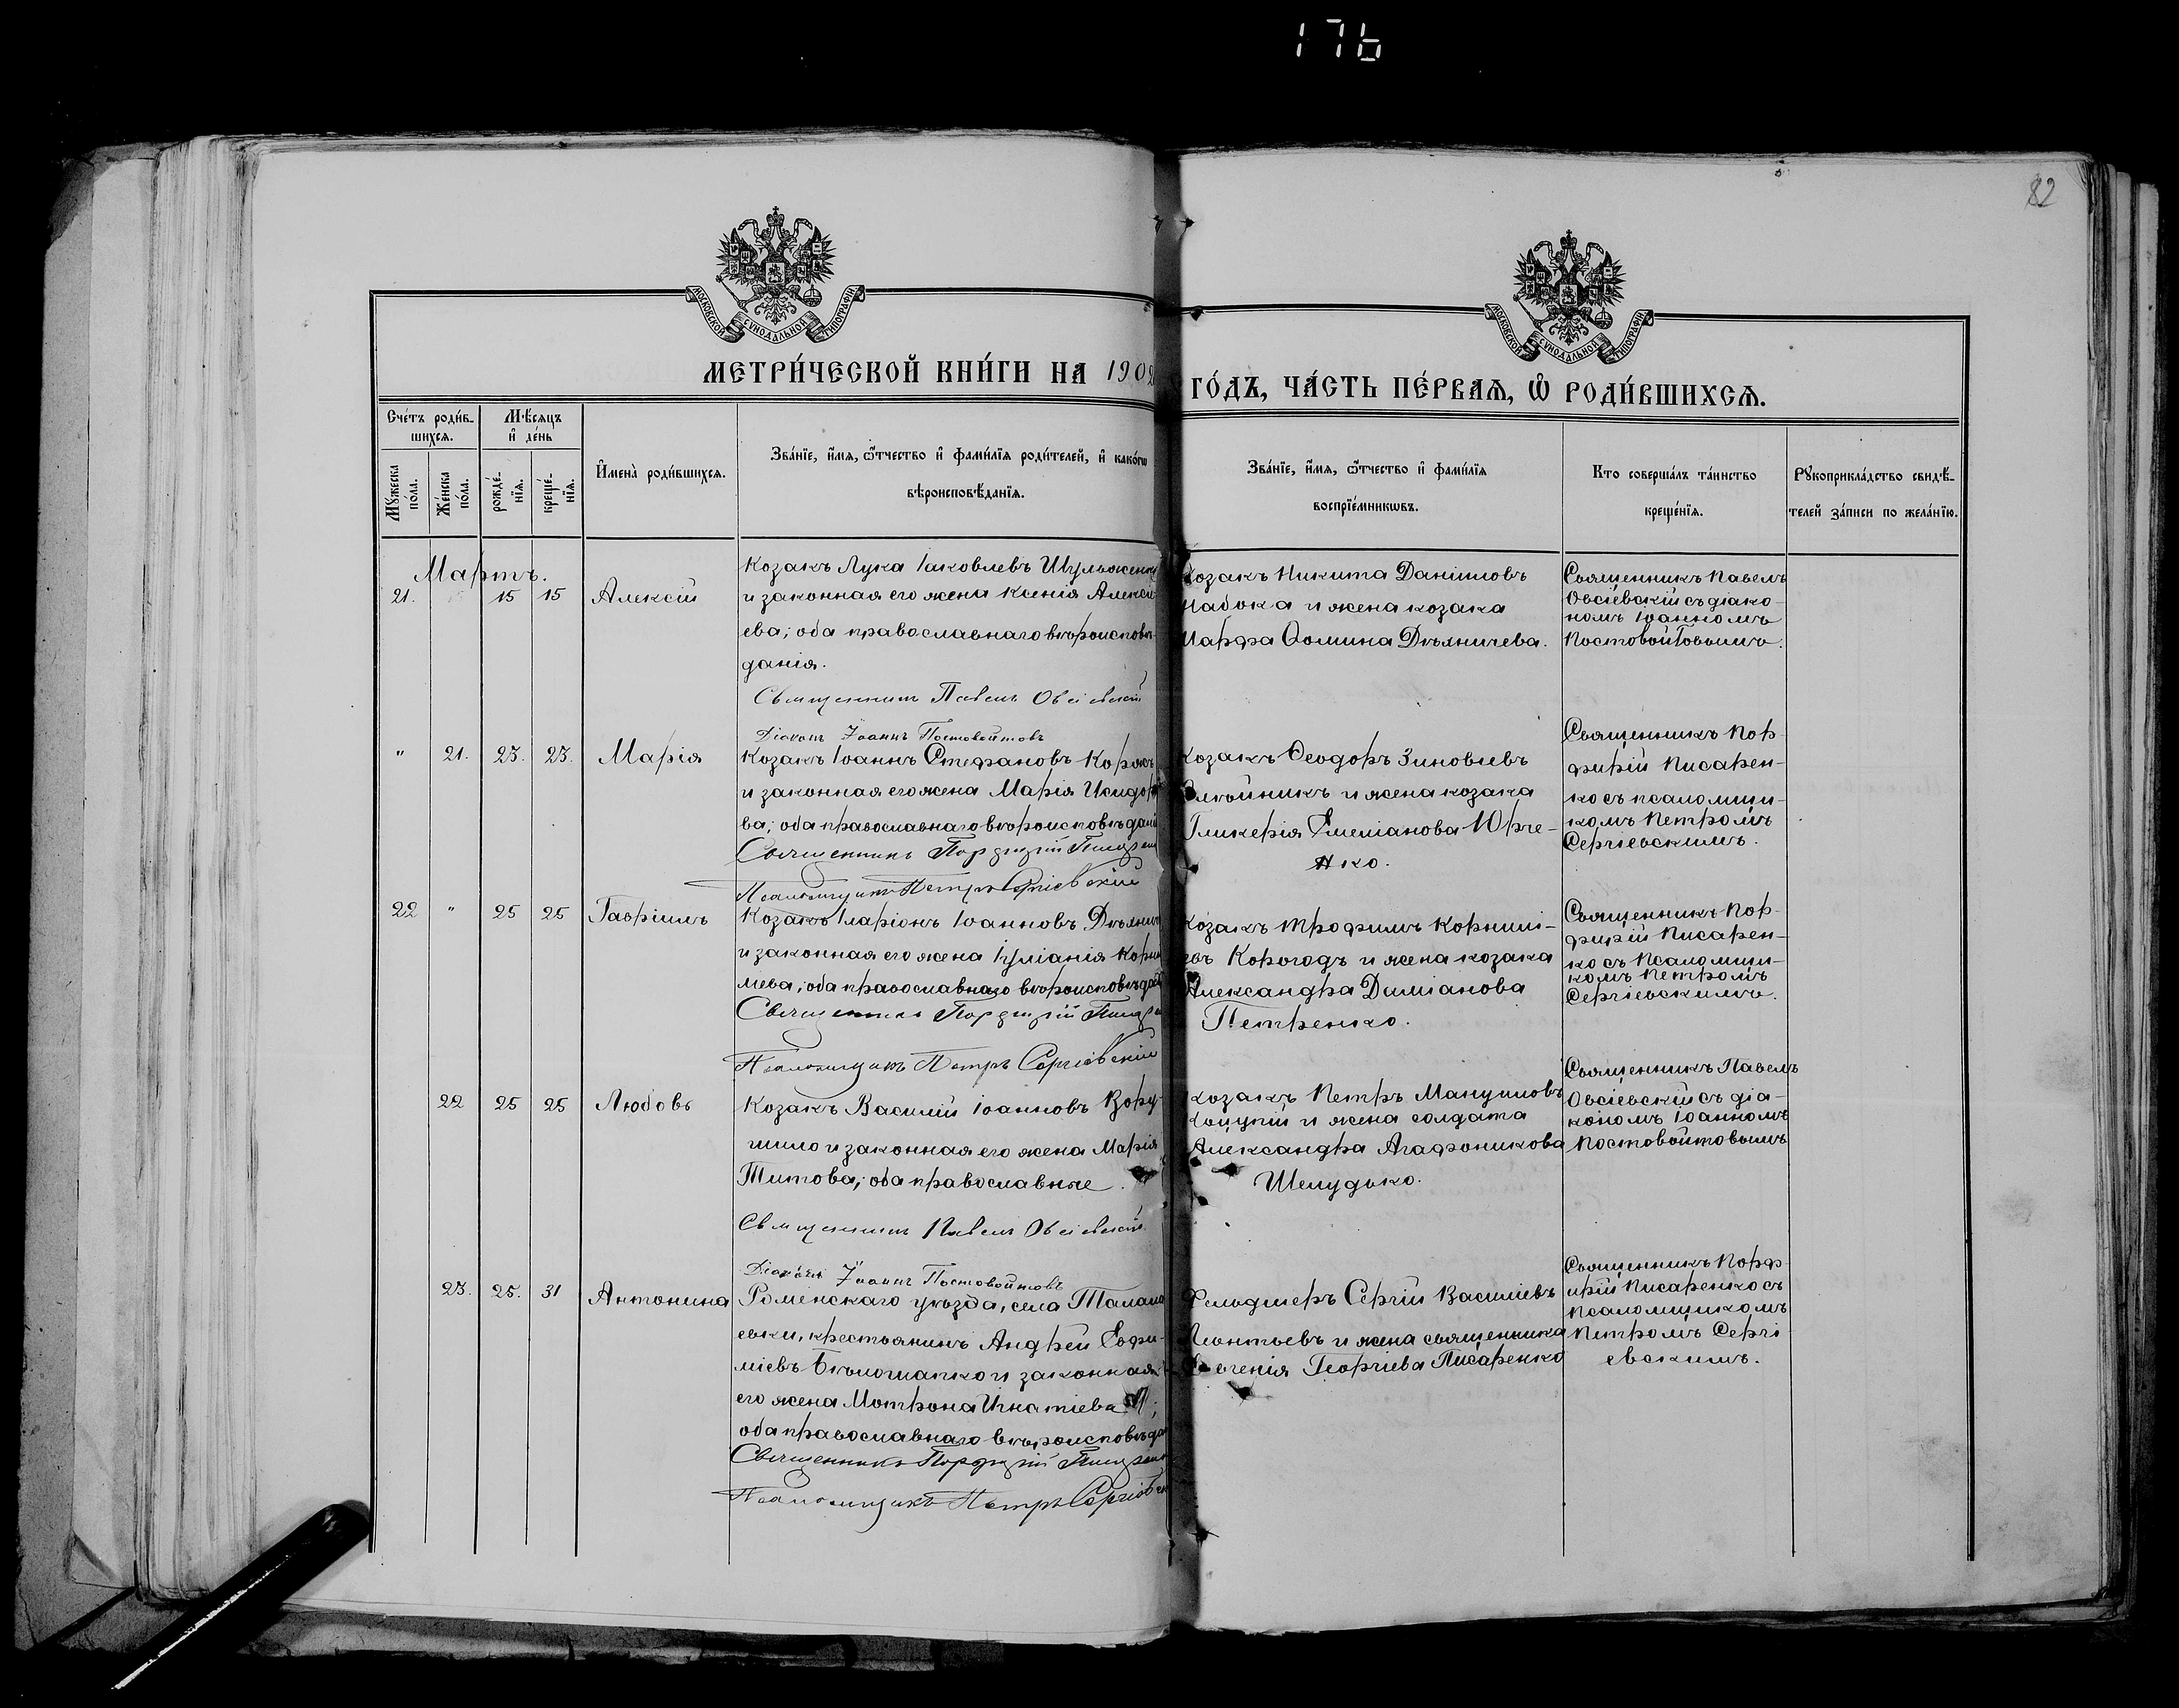 176
82
МОСКОВСКОЙ СѴНОДАЛЬНОЙ ТИПОГРАФІИ
МОСКОВСКОЙ СѴНОДАЛЬНОЙ ТИПОГРАФІИ
МЕТРИ́ЧЕСКОЙ КНИ́ГИ НА 1902
ГО́ДЪ, ЧА́СТЬ ПЕ́РВАѦ, Ѽ РОДИ́ВШИХСѦ.
Сче́тъ роди́в-
шихсѧ.
Мѣ́сяцъ
и҆ де́нь
Мꙋ́жеска
по́ла.
Же́нска
по́ла.
рожде́-
нїѧ.
креще́-
нїѧ.
И҆мена̀ роди́вшихсѧ.
Зва́нїе, и҆́мѧ, ѻ҆́тчество и҆ фами́лїѧ роди́телей, и҆ како́гѡ
вѣроисповѣ́данїѧ.
Зва́нїе, и҆́мѧ, ѻ҆́тчество и҆ фами́лїѧ
воспрїе́мникѡвъ.
Кто соверша́лъ та́инство
креще́нїѧ.
Рꙋкоприкла́дство свидѣ́-
телей за́писи по жела́нїю.
Мартъ.
21. 15 15 Алексій
Козакъ Лука Іаковлевъ Шульженко
и законная его жена Ксенія Алексі-
ева; оба православнаго вѣроисповѣ-
данія.
Священникъ Павелъ Овсіевскій
Діаконъ Іоаннъ Постовойтовъ
Козакъ Никита Даніиловъ
Набока и жена козака
Марфа Ѳомина Дѣяничева.
Священникъ Павелъ
Овсіевскій съ діако-
номъ Іоанномъ
Постовойтовымъ.
" 21. 23. 23. Марія
Козакъ Іоаннъ Стефановъ Коржъ
и законная его жена Марія Исидор
ва; оба православнаго вѣроисповѣданія
Священникъ Порфирій Писарен
Псаломщикъ Петръ Сергіевскій
Козакъ Ѳеодоръ Зиновіевъ
Олѣйникъ и жена козака
Гликерія Емеліанова Юрче-
нко.
Священникъ Пор-
фирій Писарен-
ко съ псаломщи-
комъ Петромъ
Сергіевскимъ.
22 " 25 25 Гавріилъ
Козакъ Иларіонъ Іоанновъ Дѣянич
и законная его жена Іуліанія Корни
лиева; оба православнаго вѣроисповѣдан
Священникъ Порфирій Писарен
Псаломщикъ Петръ Сергіевскій
Козакъ Трофимъ Корнилі-
евъ Корогодъ и жена козака
Александра Диміанова
Петренко.
Священникъ Пор-
фирій Писарен-
ко съ Псаломщи-
комъ Петромъ
Сергіевскимъ.
22 25 25 Любовь
Козакъ Василій Іоанновъ Вору-
шило и законная его жена Марія
Титова; оба православные.
Священникъ Павелъ Овсіевскій
Діаконъ Іоаннъ Постовойтовъ
Козакъ Петръ Мануиловъ
Коцупій и жена солдата
Александра Агафоникова
Шелудько.
Священникъ Павелъ
Овсіевскій съ діа-
кономъ Іоанномъ
Постовойтовымъ
23. 25. 31 Антонина
Роменскаго уѣзда, села Талала
евки, крестьянинъ Андрей Евфи-
міевъ Бѣлошапко и законная
его жена Мотрона Игнатіева;
оба православнаго вѣроисповѣда
Священникъ Порфирій Писарен
Псаломщикъ Петръ Сергіевск
Фельдшеръ Сергій Василіевъ
Леонтьевъ и жена священника
Евгенія Георгіева Писаренко
Священникъ Порф-
ирій Писаренко съ
Псаломщикомъ
Петромъ Сергі-
евскимъ.